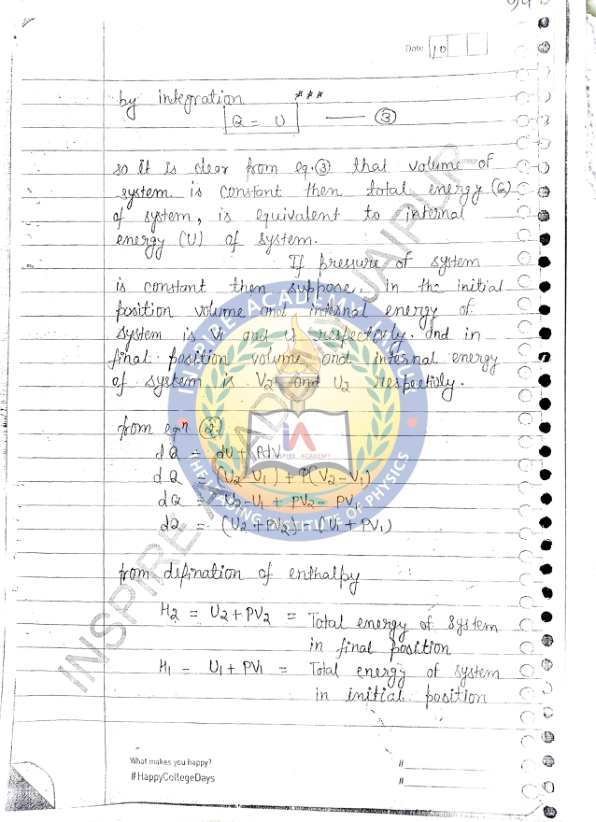 Date 10
by integration ***
Q = U —— ③
so it is clear from eq.③ that volume of
system is constant then total energy (Q)
of system, is equivalent to internal
energy (U) of system.
If pressure of system
is constant then suppose, in the initial
position volume and internal energy of
system is V1 and U1 respectivly. And in
final position volume and internal energy
of system is V2 and U2 respectivly.
from eqn ②
dQ = dU + PdV
dQ = (U2-U1) + P(V2-V1)
dQ = U2-U1 + PV2 - PV1
dQ = (U2+PV2) - (U1 + PV1)
from defination of enthalpy
H2 = U2+PV2 = Total energy of system
in final position
H1 = U1+PV1 = Total energy of system
in initial position
What makes you happy?
#HappyCollegeDays
#
#
INSPIRE ACADEMY JAIPUR
INSPIRE ACADEMY
iA
INSPIRE ACADEMY
INSTITUTE OF PHYSICS